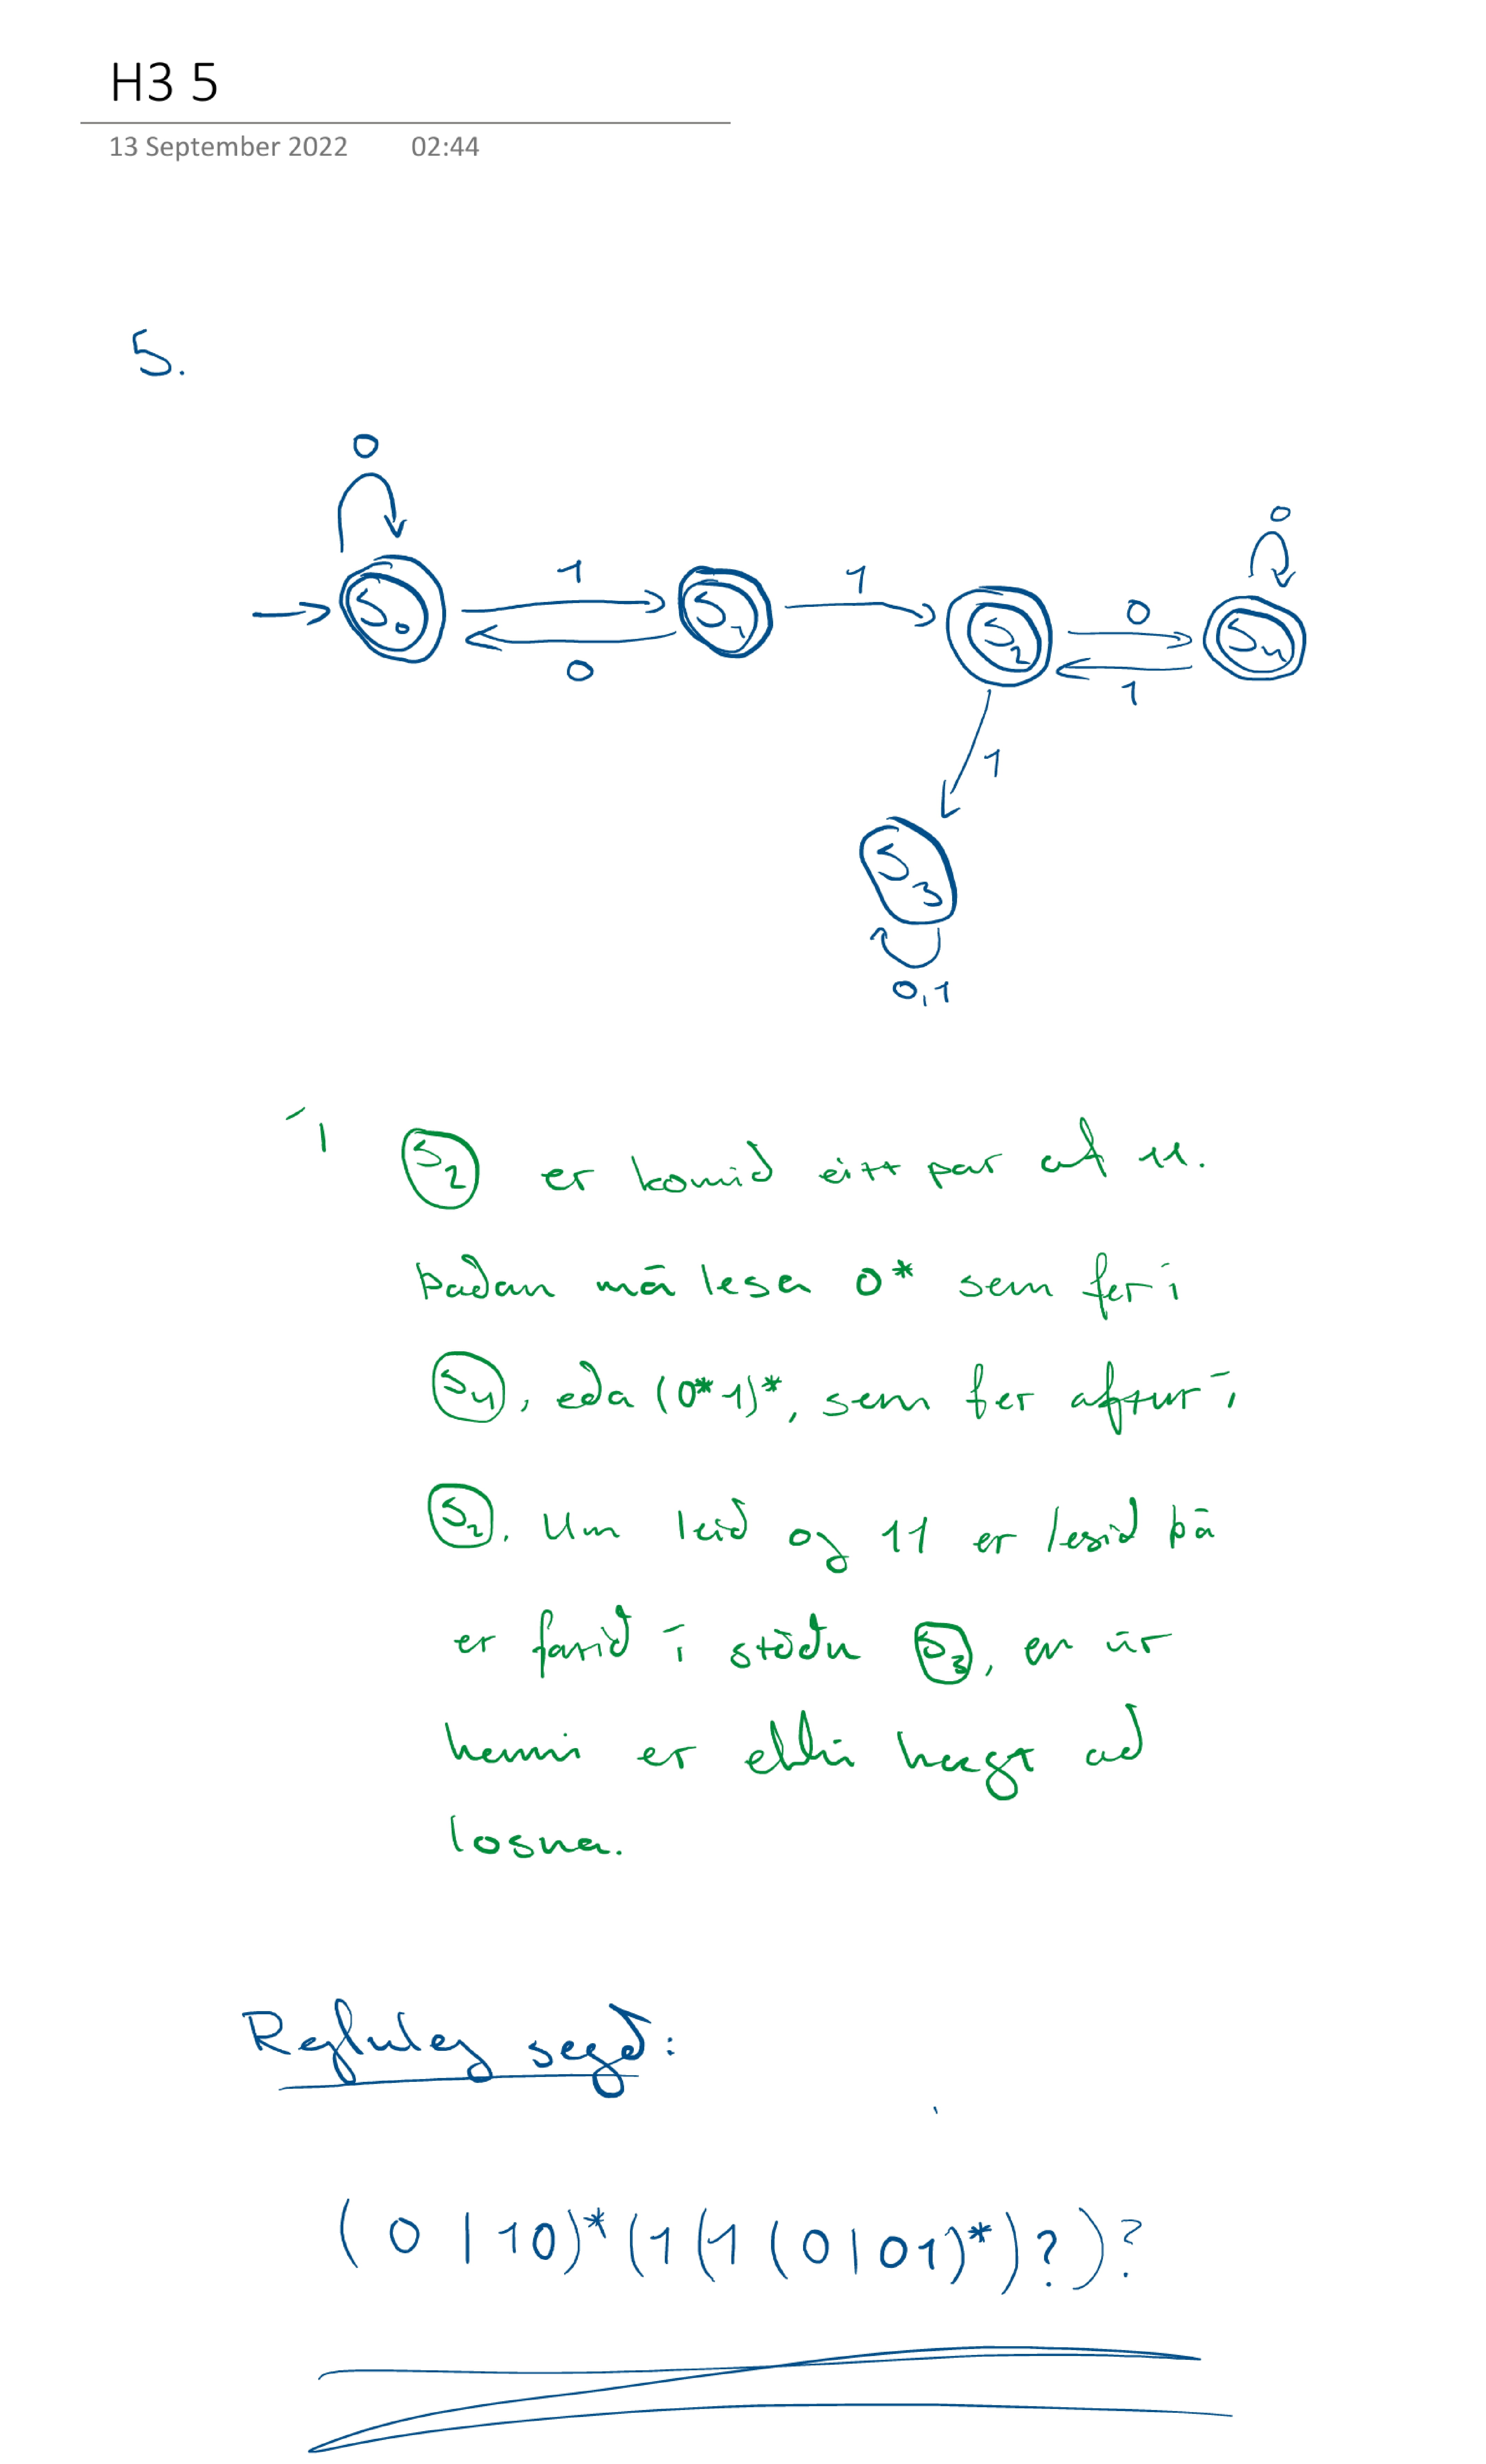 H3 5
13 September 2022 02:44
5.
0
0
1
1
0
S0
S1
S2
S4
0
1
1
S3
0,1
Í S2 er komið eitt par af 11.
Þaðan má lesa 0* sem fer í
S4, eða (0*1)*, sem fer aftur í
S2. Um leið og 11 er lesið þá
er farið í stöðu S3, en úr
henni er ekki hægt að
losna.
Regluleg segð:
(0|10)*(1(1(0|01)*)?)?